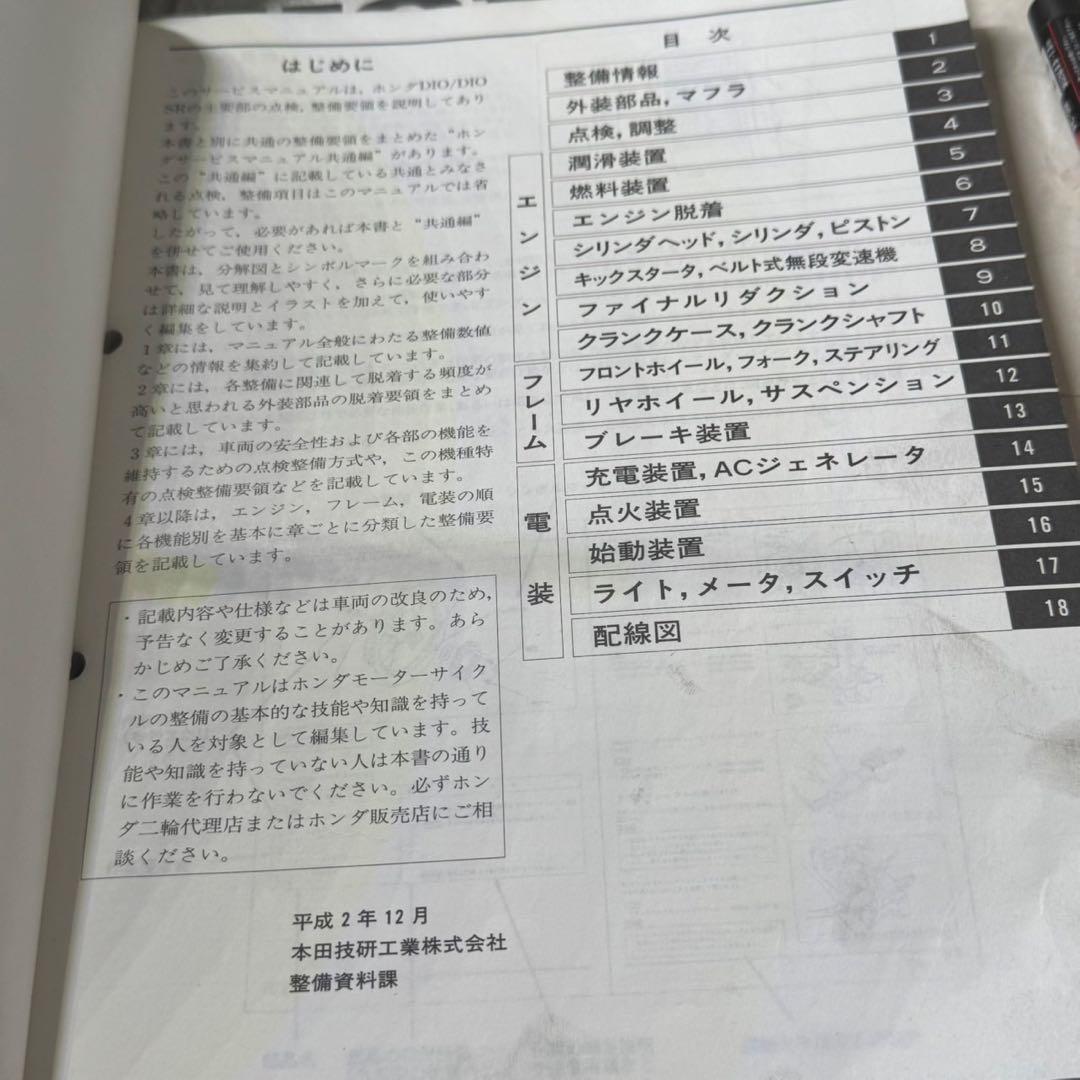 はじめに
このサービスマニュアルは，ホンダDIO/DIO
SRの主要部の点検，整備要領を説明してあり
ます。
本書と別に共通の整備要領をまとめた“ホン
ダサービスマニュアル共通編”があります。
この“共通編”に記載している共通とみなさ
れる点検，整備項目はこのマニュアルでは省
略しています。
したがって，必要があれば本書と“共通編”
を併せてご使用ください。
本書は，分解図とシンボルマークを組み合わ
せて，見て理解しやすく，さらに必要な部分
は詳細な説明とイラストを加えて，使いやす
く編集をしています。
1章には，マニュアル全般にわたる整備数値
などの情報を集約して記載しています。
2章には，各整備に関連して脱着する頻度が
高いと思われる外装部品の脱着要領をまとめ
て記載しています。
3章には，車両の安全性および各部の機能を
維持するための点検整備方式や，この機種特
有の点検整備要領などを記載しています。
4章以降は，エンジン，フレーム，電装の順
に各機能別を基本に章ごとに分類した整備要
領を記載しています。
・記載内容や仕様などは車両の改良のため，
予告なく変更することがあります。あら
かじめご了承ください。
・このマニュアルはホンダモーターサイク
ルの整備の基本的な技能や知識を持って
いる人を対象として編集しています。技
能や知識を持っていない人は本書の通り
に作業を行わないでください。必ずホン
ダ二輪代理店またはホンダ販売店にご相
談ください。
平成2年12月
本田技研工業株式会社
整備資料課
目次
整備情報 1
外装部品，マフラ 2
点検，調整 3
エンジン
潤滑装置 4
燃料装置 5
エンジン脱着 6
シリンダヘッド，シリンダ，ピストン 7
キックスタータ，ベルト式無段変速機 8
ファイナルリダクション 9
クランクケース，クランクシャフト 10
フレーム
フロントホイール，フォーク，ステアリング 11
リヤホイール，サスペンション 12
ブレーキ装置 13
電装
充電装置，ACジェネレータ 14
点火装置 15
始動装置 16
ライト，メータ，スイッチ 17
配線図 18